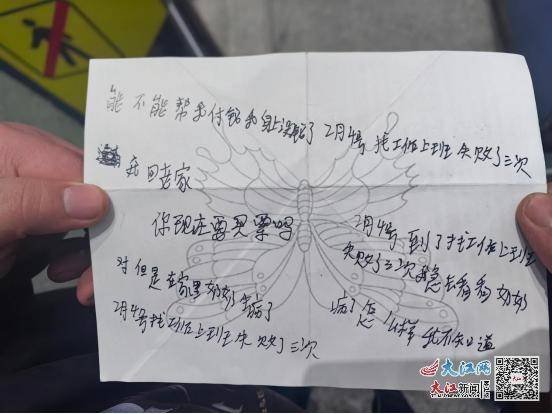 能不能帮我付钱我身上没钱了 2月4号 找工作上班失败了三次
在回老家
你现在要买票吗
对 但是 在家里奶奶生病了
2月4号找工作上班失败了三次
2月4号 到了找工作上班
失败了三次 急 去看看奶奶
病了怎么样我不知道
大江网
大江新闻